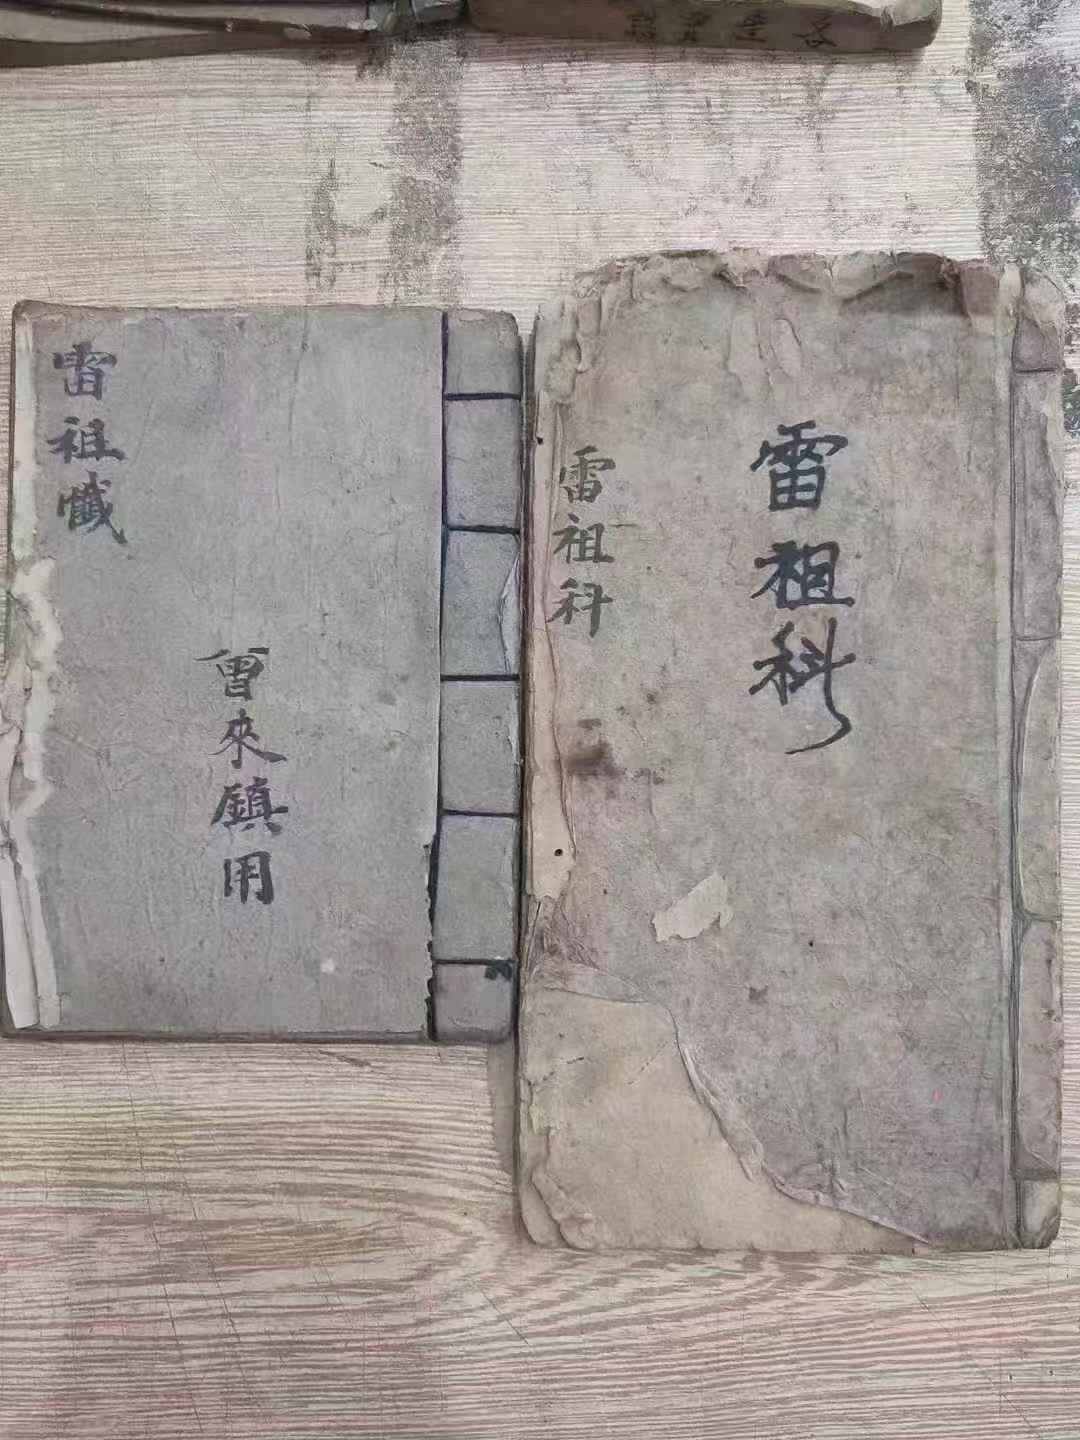 雷祖懺
曾來鎮用
雷祖科
雷祖科